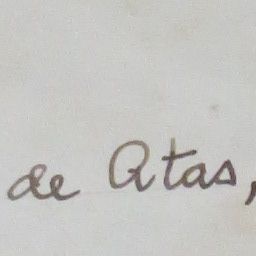 de Atas,